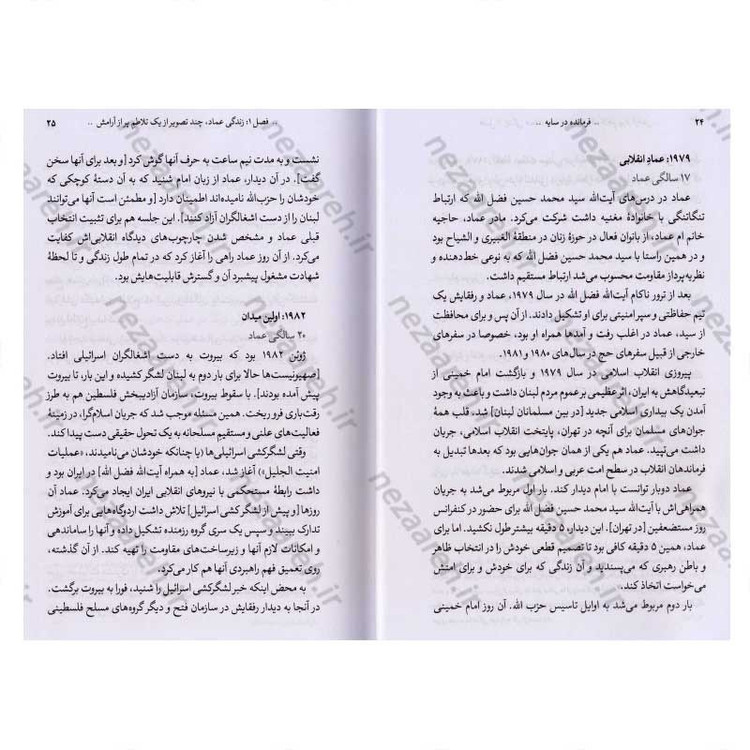 ۲۴
.. فرمانده در سایه ..
۱۹۷۹: عمادِ انقلابی
۱۷ سالگی عماد
عماد در درس‌های آیت‌الله سید محمد حسین فضل الله که ارتباط
تنگاتنگی با خانوادهٔ مغنیه داشت شرکت می‌کرد. مادر عماد، حاجیه
خانم ام عماد، از بانوان فعال در حوزهٔ زنان در منطقهٔ الغبیری و الشیاح بود
و در همین راستا با سید محمد حسین فضل الله که به نوعی خط‌دهنده و
نظریه‌پرداز مقاومت محسوب می‌شد ارتباط مستقیم داشت.
بعد از ترور ناکام آیت‌الله فضل الله در سال ۱۹۷۹، عماد و رفقایش یک
تیم حفاظتی و سپر امنیتی برای او تشکیل دادند. از آن پس و برای محافظت
از سید، عماد در اغلب رفت و آمدها همراه او بود، خصوصا در سفرهای
خارجی از قبیل سفرهای حج در سال‌های ۱۹۸۰ و ۱۹۸۱.
پیروزی انقلاب اسلامی در سال ۱۹۷۹ و بازگشت امام خمینی از
تبعیدگاهش به ایران، اثر عظیمی بر عموم مردم لبنان داشت و باعث به وجود
آمدن یک بیداری اسلامی جدید [در بین مسلمانان لبنان] شد. قلب همهٔ
جوان‌های مسلمان برای آنچه در تهران، پایتخت انقلاب اسلامی، جریان
داشت می‌تپید. عماد هم یکی از همان جوان‌هایی بود که بعدها تبدیل به
فرماندهان انقلاب در سطح امت عربی و اسلامی شدند.
عماد دوبار توانست با امام دیدار کند. بار اول مربوط می‌شد به جریان
همراهی‌اش با آیت‌الله سید محمد حسین فضل الله برای حضور در کنفرانس
روز مستضعفین [در تهران]. این دیدار، ۵ دقیقه بیشتر طول نکشید. اما برای
عماد، همین ۵ دقیقه کافی بود تا تصمیم قطعی خودش را در انتخاب ظاهر
و باطن رهبری که می‌پسندید و آن زندگی که برای خودش و برای امتش
می‌خواست اتخاذ کند.
بار دوم مربوط می‌شد به اوایل تاسیس حزب الله. آن روز امام خمینی
.. فصل ۱: زندگی عماد، چند تصویر از یک تلاطم پر از آرامش ..
۲۵
نشست و به مدت نیم ساعت به حرف آنها گوش کرد [و بعد برای آنها سخن
گفت]. در آن دیدار، عماد از زبان امام شنید که به آن دستهٔ کوچکی که
خودشان را حزب‌الله نامیده‌اند اطمینان دارد [و مطمئن است آنها می‌توانند
لبنان را از دست اشغالگران آزاد کنند]. این جلسه هم برای تثبیت انتخاب
قبلی عماد و مشخص شدن چارچوب‌های دیدگاه انقلابی‌اش کفایت
می‌کرد. از آن روز عماد راهی را آغاز کرد که در تمام طول زندگی و تا لحظهٔ
شهادت مشغول پیشبرد آن و گسترش قابلیت‌هایش بود.
۱۹۸۲: اولین میدان
۲۰ سالگی عماد
ژوئن ۱۹۸۲ بود که بیروت به دست اشغالگران اسرائیلی افتاد.
[صهیونیست‌ها حالا برای بار دوم به لبنان لشگر کشیده و این بار، تا بیروت
پیش آمده بودند]. با سقوط بیروت، سازمان آزادیبخش فلسطین هم به طرز
رقت‌باری فرو ریخت. همین مسئله موجب شد که جریان اسلام‌گرا، در زمینهٔ
فعالیت‌های علنی و مستقیم مسلحانه به یک تحول حقیقی دست پیدا کند.
وقتی لشگرکشی اسرائیلی‌ها (یا چنانکه خودشان می‌نامیدند، «عملیات
امنیت الجلیل») آغاز شد، عماد [به همراه آیت‌الله فضل الله] در ایران بود و
داشت رابطهٔ مستحکمی با نیروهای انقلابی ایران ایجاد می‌کرد. عماد آن
روزها [و پیش از لشگرکشی اسرائیل] تلاش داشت اردوگاه‌هایی برای آموزش
تدارک ببیند و سپس یک سری گروه رزمنده تشکیل داده و آنها را ساماندهی
و امکانات لازم آنها و زیرساخت‌های مقاومت را تهیه کند. از آن گذشته،
روی تعمیق فهم راهبردی آنها هم کار می‌کرد.
به محض اینکه خبر لشگرکشی اسرائیل را شنید، فورا به بیروت برگشت.
در آنجا به دیدار رفقایش در سازمان فتح و دیگر گروه‌های مسلح فلسطینی
nezaareh.ir